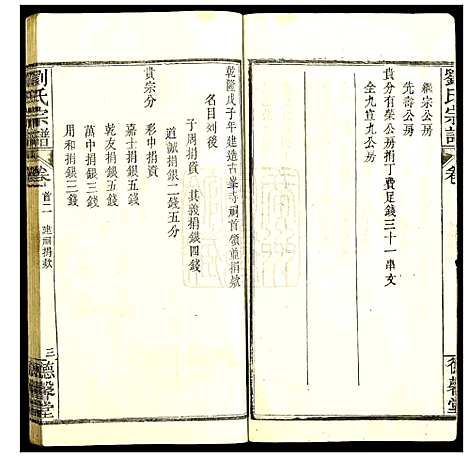 劉氏宗譜
卷
德馨堂
繼宗公房
先壽公房
貴分有榮公房捐丁費足錢三十一串文
全九宣九公房
乾隆戊子年建造古峯寺祠首領並捐欵
名目列後
子周捐資 其義捐銀四錢
道誠捐銀二錢五分
貴宗分
彩中捐資
嘉士捐銀五錢
乾友捐銀五錢
萬中捐銀三錢
用和捐銀三錢
劉氏宗譜
卷首二 建祠捐欵
三 德馨堂